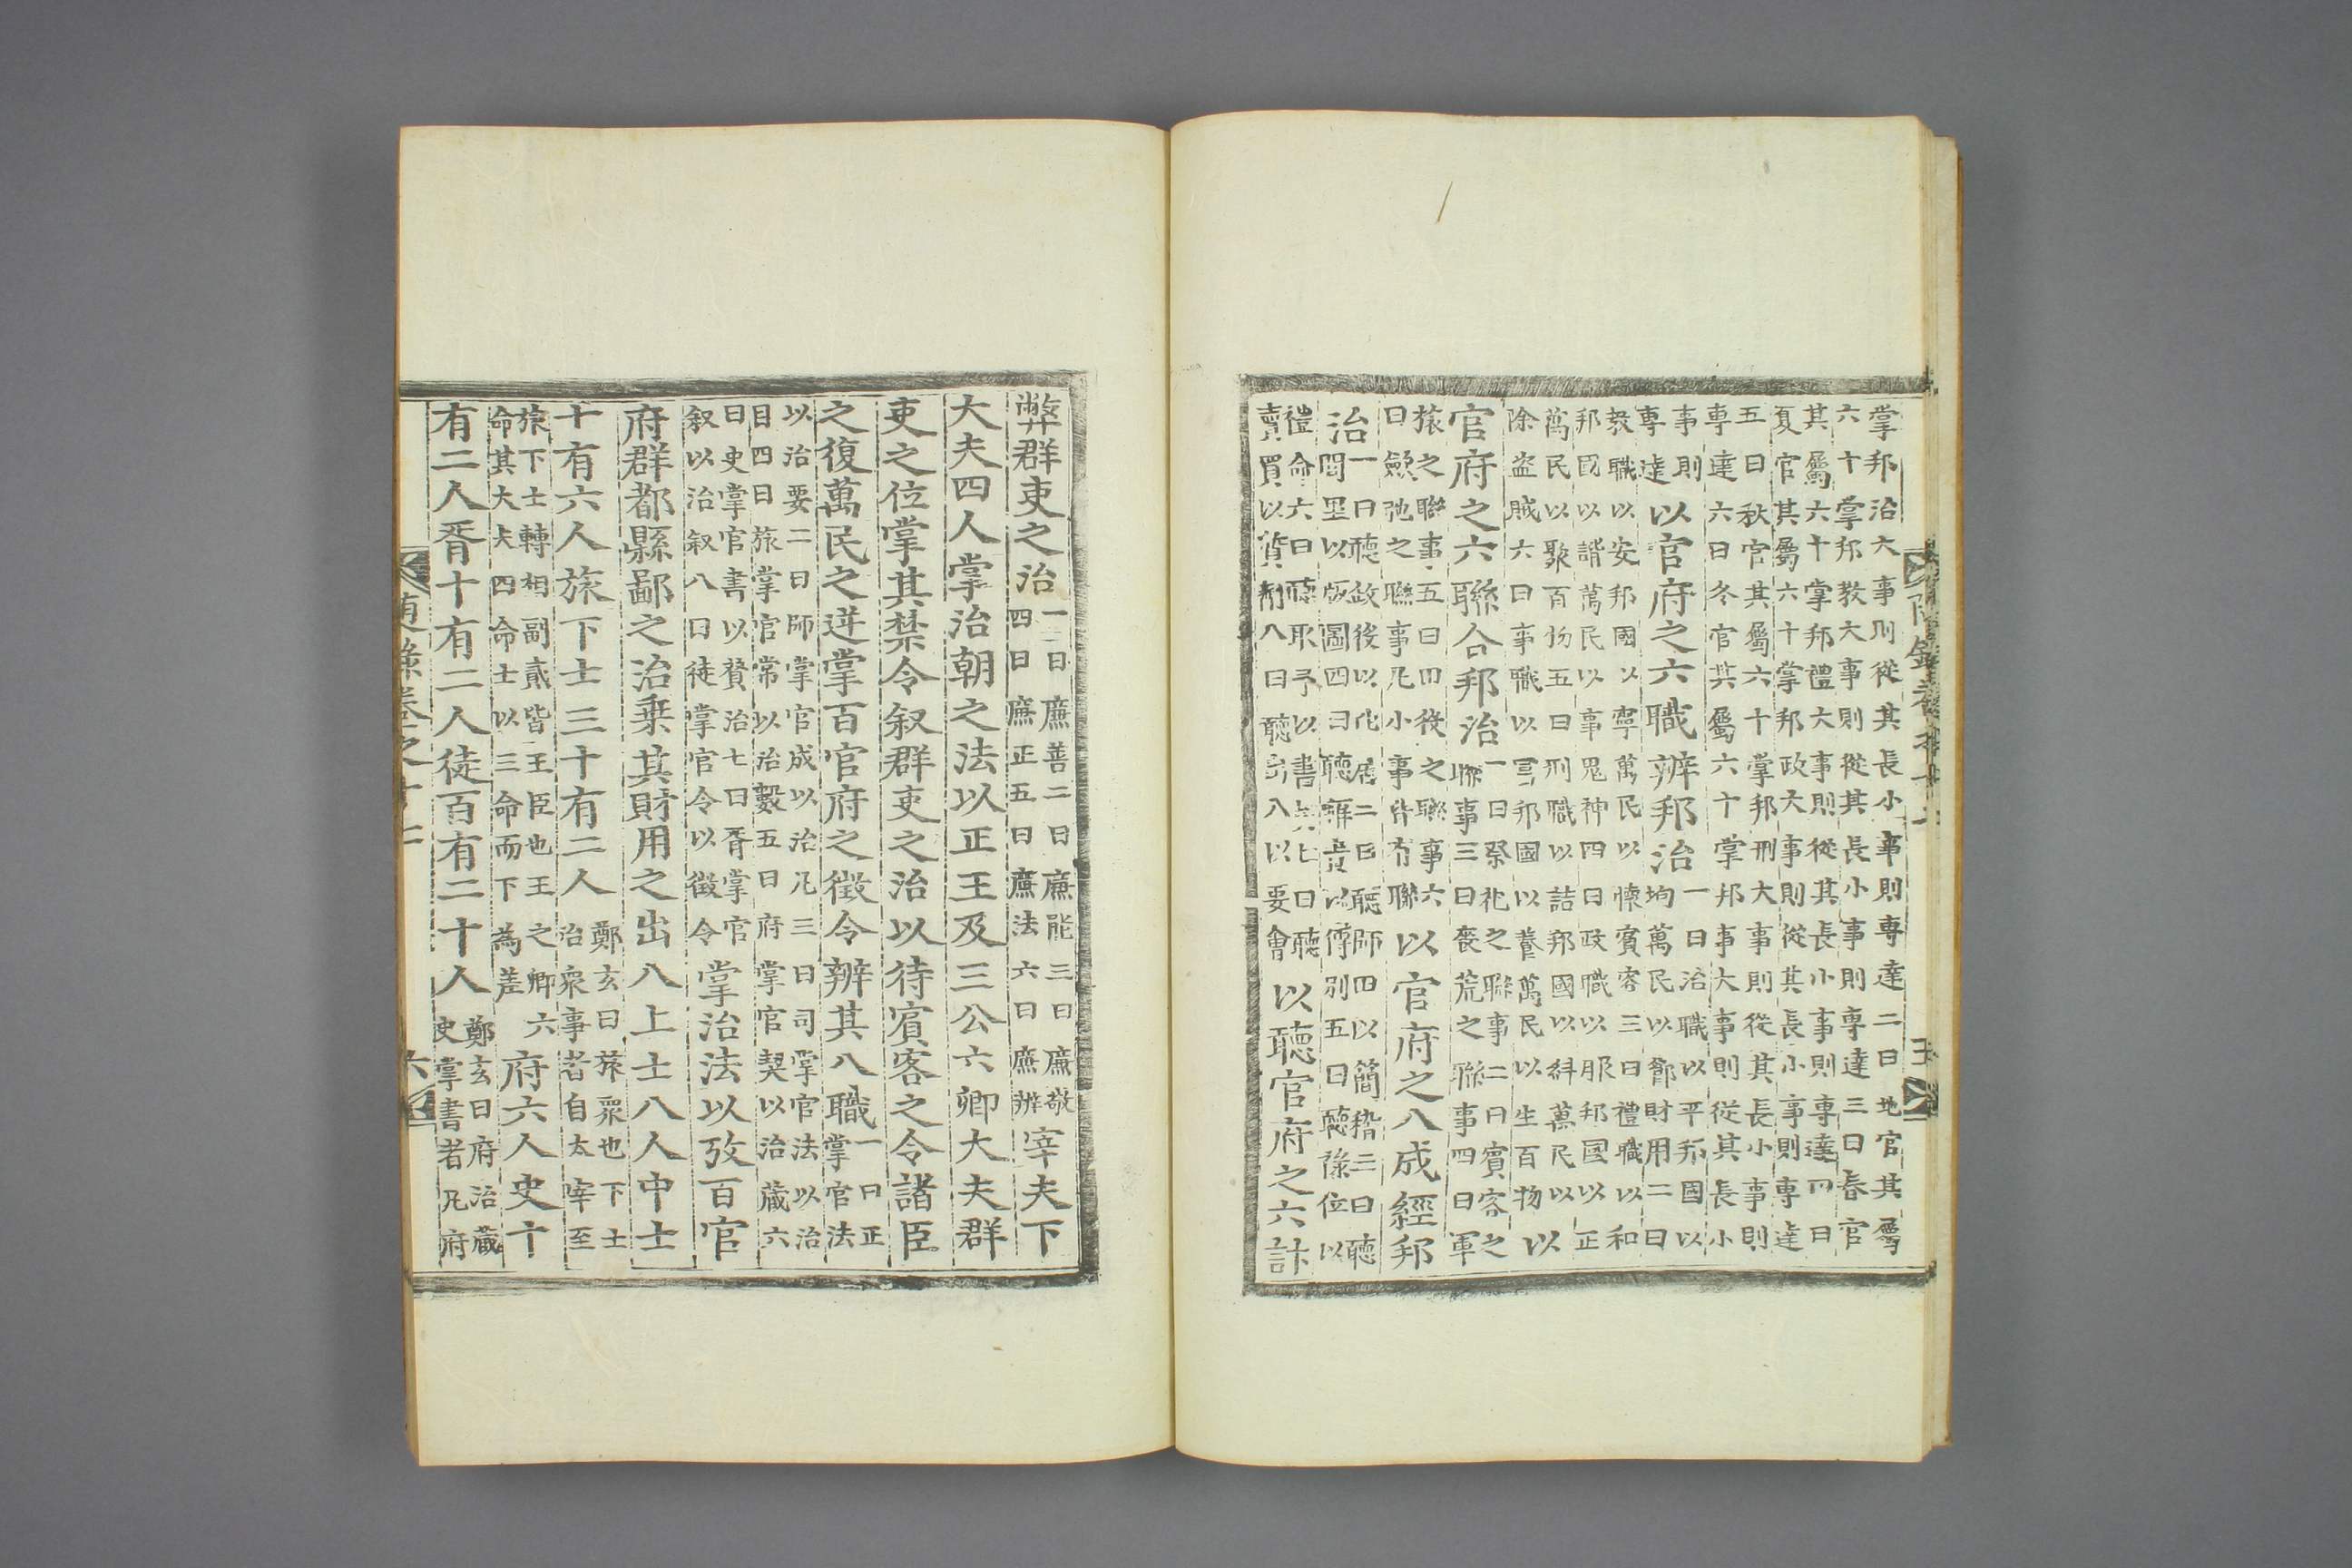 掌邦治大事則從其長小事則專達二曰地官其屬
六十掌邦教大事則從其長小事則專達三曰春官
其屬六十掌邦禮大事則從其長小事則專達四曰
夏官其屬六十掌邦政大事則從其長小事則專達
五曰秋官其屬六十掌邦刑大事則從其長小事則
專達六曰冬官其屬六十掌邦事大事則從其長小
事則專達以官府之六職辨邦治一曰治職以平邦國以均萬民以節財用二曰
教職以安邦國以寧萬民以懷賓客三曰禮職以和
邦國以諧萬民以事鬼神四曰政職以服邦國以正
萬民以聚百物五曰刑職以詰邦國以糾萬民以
除盗賊六曰事職以富邦國以養萬民以生百物以
官府之六聯合邦治一曰祭祀之聯事二曰賓客之聯事三曰喪荒之聯事四曰軍
旅之聯事五曰田役之聯事六曰斂弛之聯事凡小事皆有聯以官府之八成經邦
治一曰聽政役以比居二曰聽師田以簡稽三曰聽閭里以版圖四曰聽稱責以傅別五曰聽祿位以
禮命六曰聽取予以書契七曰聽賣買以質劑八曰聽出入以要會以聽官府之六計
弊群吏之治一曰廉善二曰廉能三曰廉敬四曰廉正五曰廉法六曰廉辨宰夫下
大夫四人掌治朝之法以正王及三公六卿大夫群
吏之位掌其禁令叙群吏之治以待賓客之令諸臣
之復萬民之逆掌百官府之徵令辨其八職一曰正掌官法
以治要二曰師掌官成以治凡三曰司掌官法以治
目四曰旅掌官常以治數五曰府掌官契以治藏六
曰史掌官書以贊治七曰胥掌官叙以治叙八曰徒掌官令以徵令掌治法以攷百官
府群都縣鄙之治乗其財用之出入上士八人中士
十有六人旅下士三十有二人鄭玄曰旅衆也下士治衆事者自太宰至
旅下士轉相副貳皆王臣也王之卿六命其大夫四命士以三命而下為差府六人史十
有二人胥十有二人徒百有二十人鄭玄曰府治藏史掌書者凡府
隨錄卷之十七
六